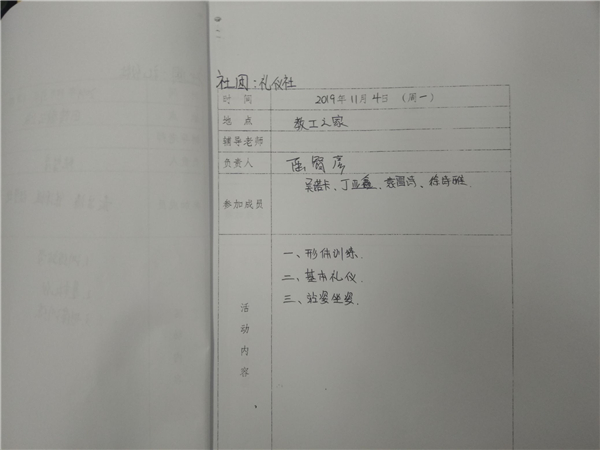 社团:礼仪社
时间 2019年11月4日 (周一)
地点 教工之家
辅导老师
负责人
参加成员 吴诺卡、丁亚鑫、
活动内容
一、形体训练.
二、基本礼仪
三、站姿坐姿.